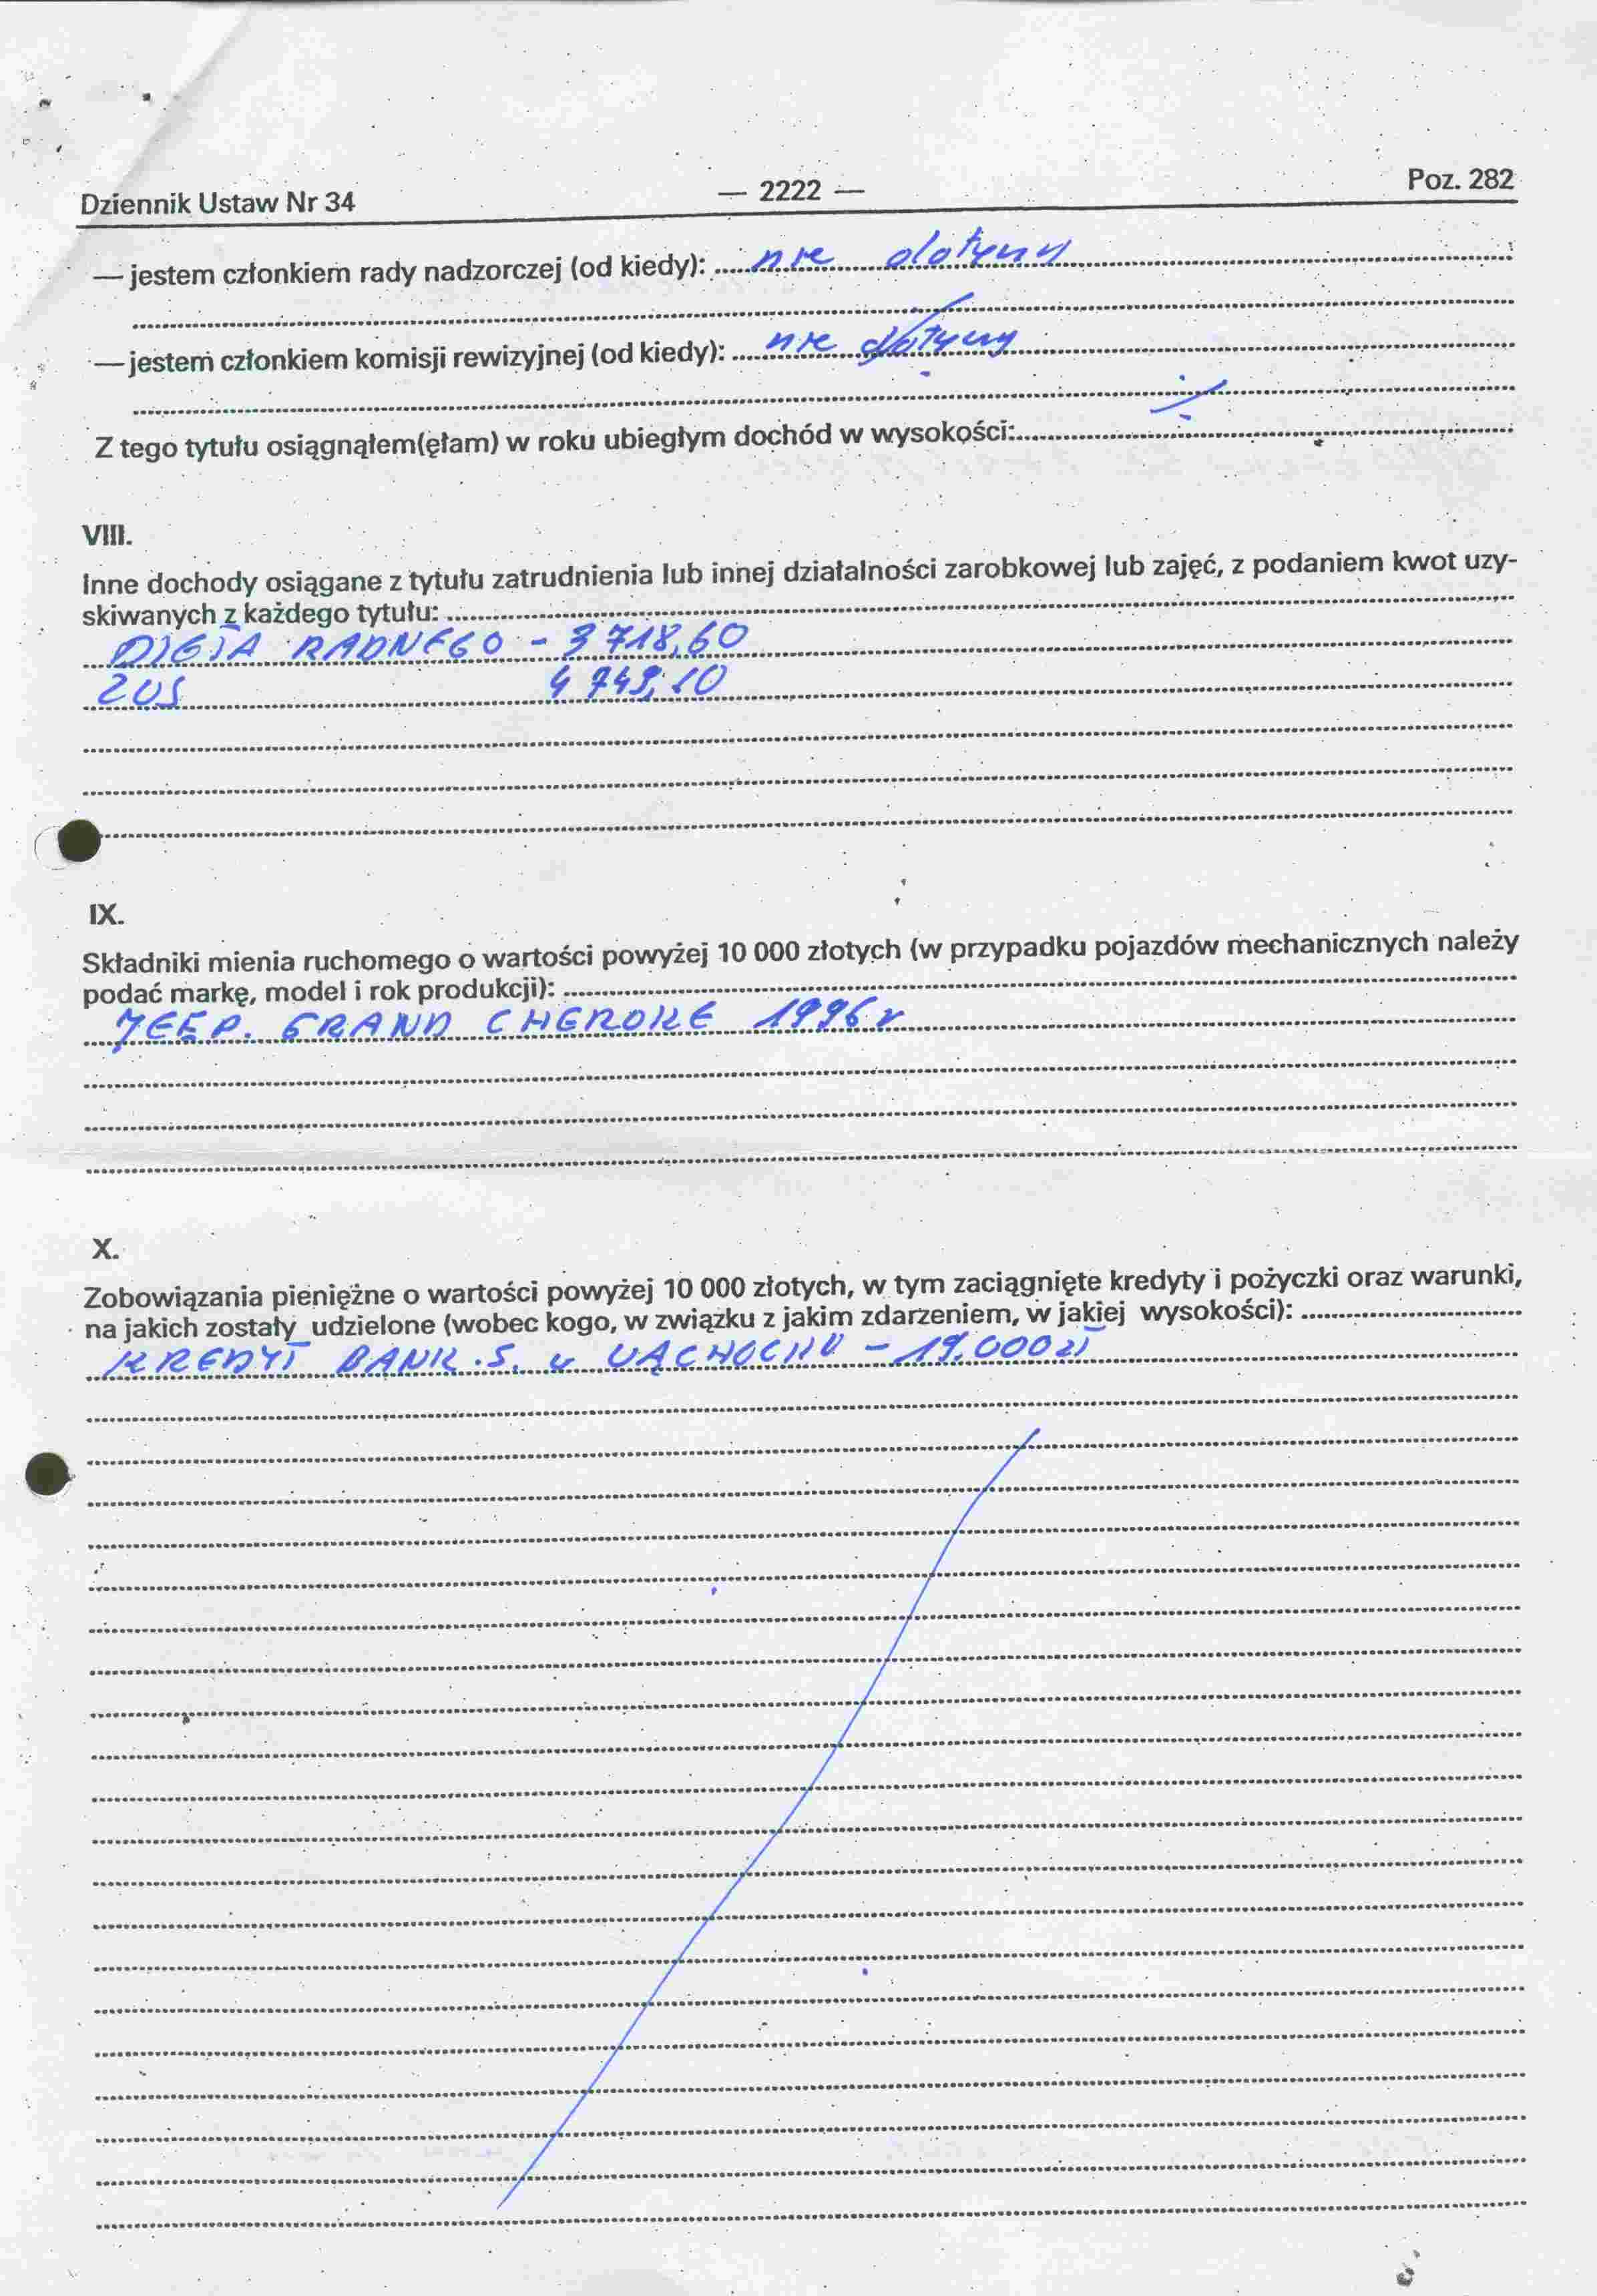 Dziennik Ustaw Nr 34 — 2222 — Poz. 282
— jestem członkiem rady nadzorczej (od kiedy): nie dotyczy
— jestem członkiem komisji rewizyjnej (od kiedy): nie dotyczy
Z tego tytułu osiągnąłem(ęłam) w roku ubiegłym dochód w wysokości:
VIII.
Inne dochody osiągane z tytułu zatrudnienia lub innej działalności zarobkowej lub zajęć, z podaniem kwot uzy-
skiwanych z każdego tytułu:
DIETA RADNEGO - 3 718,60
ZUS 4 749,10
IX.
Składniki mienia ruchomego o wartości powyżej 10 000 złotych (w przypadku pojazdów mechanicznych należy
podać markę, model i rok produkcji):
JEEP. GRAND CHEROKE 1996 r
X.
Zobowiązania pieniężne o wartości powyżej 10 000 złotych, w tym zaciągnięte kredyty i pożyczki oraz warunki,
na jakich zostały udzielone (wobec kogo, w związku z jakim zdarzeniem, w jakiej wysokości):
KREDYT BANK.S. w WĄCHOCKU - 19.000 zł